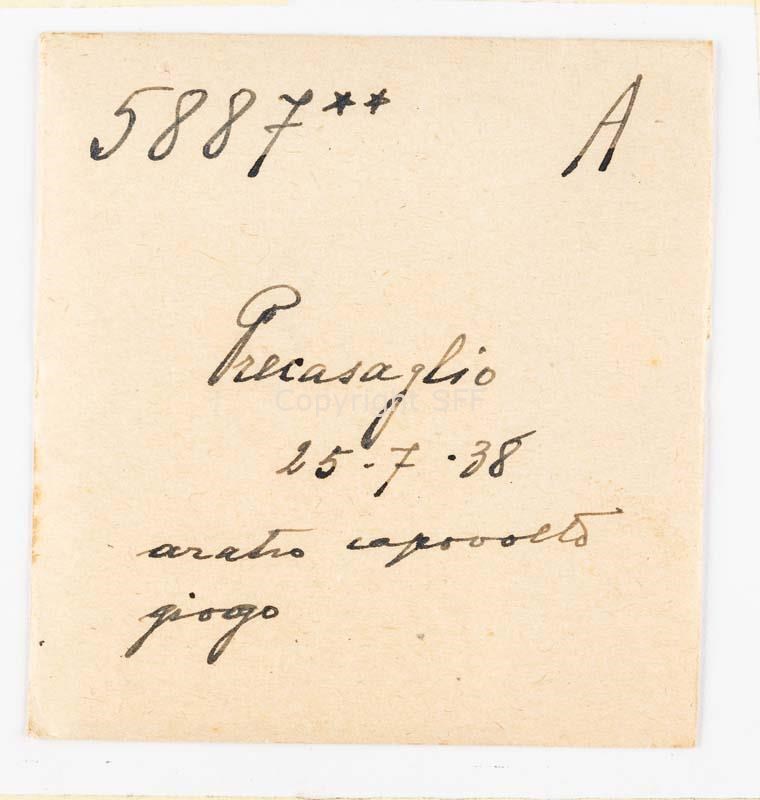 5887** A
Precasaglio
Copyright SFF
25-7-38
aratro capovolto
giogo